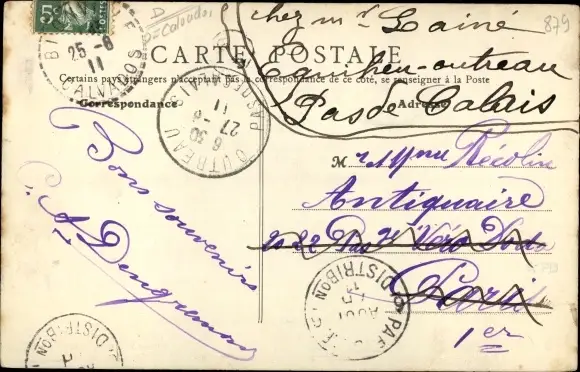 879
5c
25-8
11
CALVADOS
D=Calvados
chez mr Lainé
Equihen-outreau
Pas de Calais
CARTE POSTALE
Certains pays étrangers n'acceptant pas la correspondance de ce côté, se renseigner à la Poste
Correspondance
Adresse
OUTREAU PAS DE CALAIS
6 30
27-8
11
Bons souvenirs
M r Mme Récolin
Antiquaire
20-22 Pasge Véro Dodat
Paris
1er
DISTRIBON
AOUT
DISTRIBON